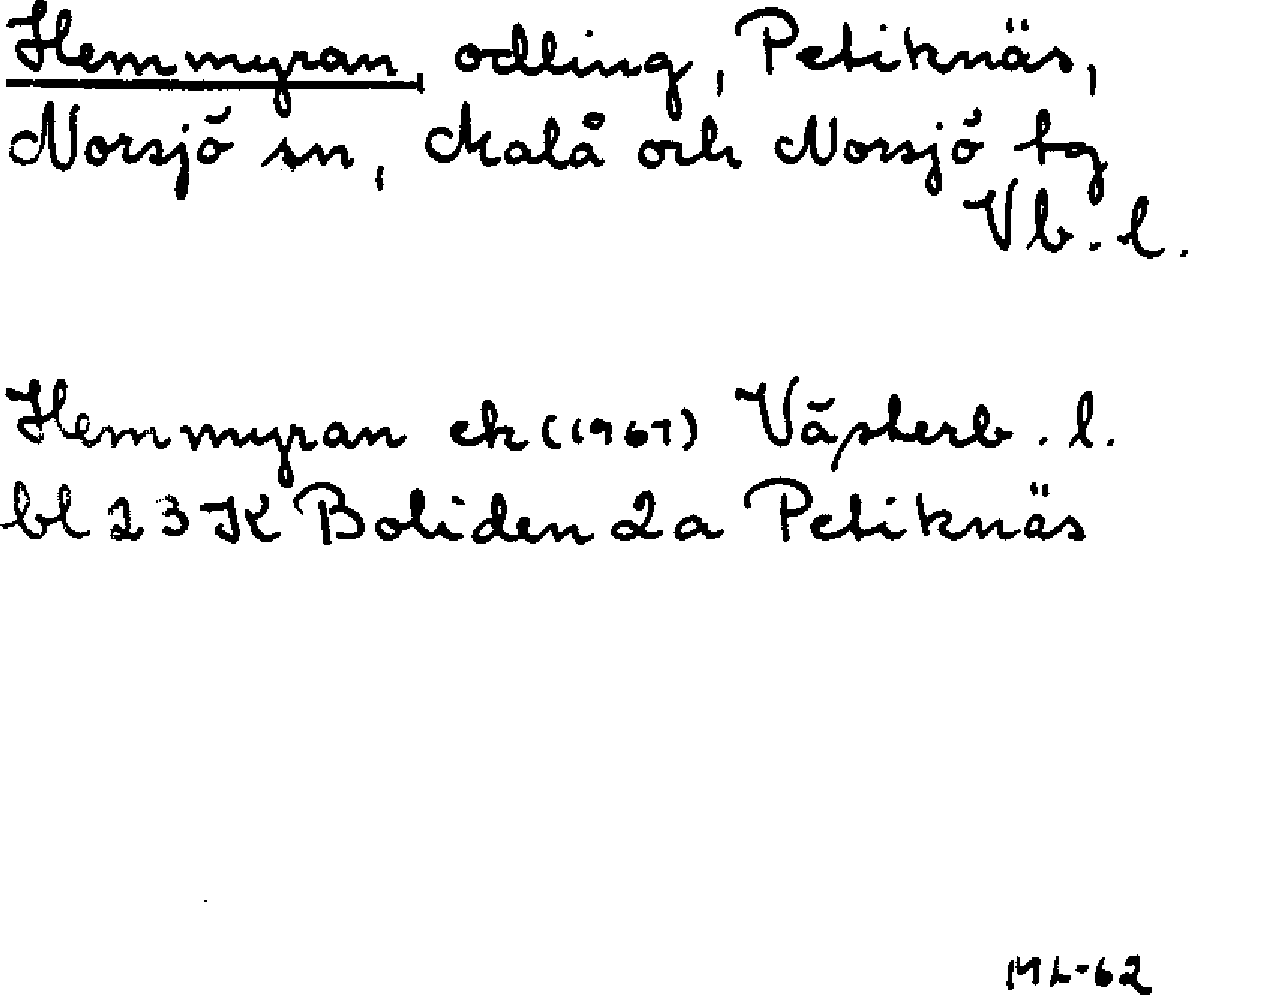 Hemmyran, odling, Petiknäs,
Norsjö sn, Malå och Norsjö tg
Vb. l.
Hemmyran ek (1967) Västerb. l.
bl 23 K Boliden 2a Petiknäs
ML-62